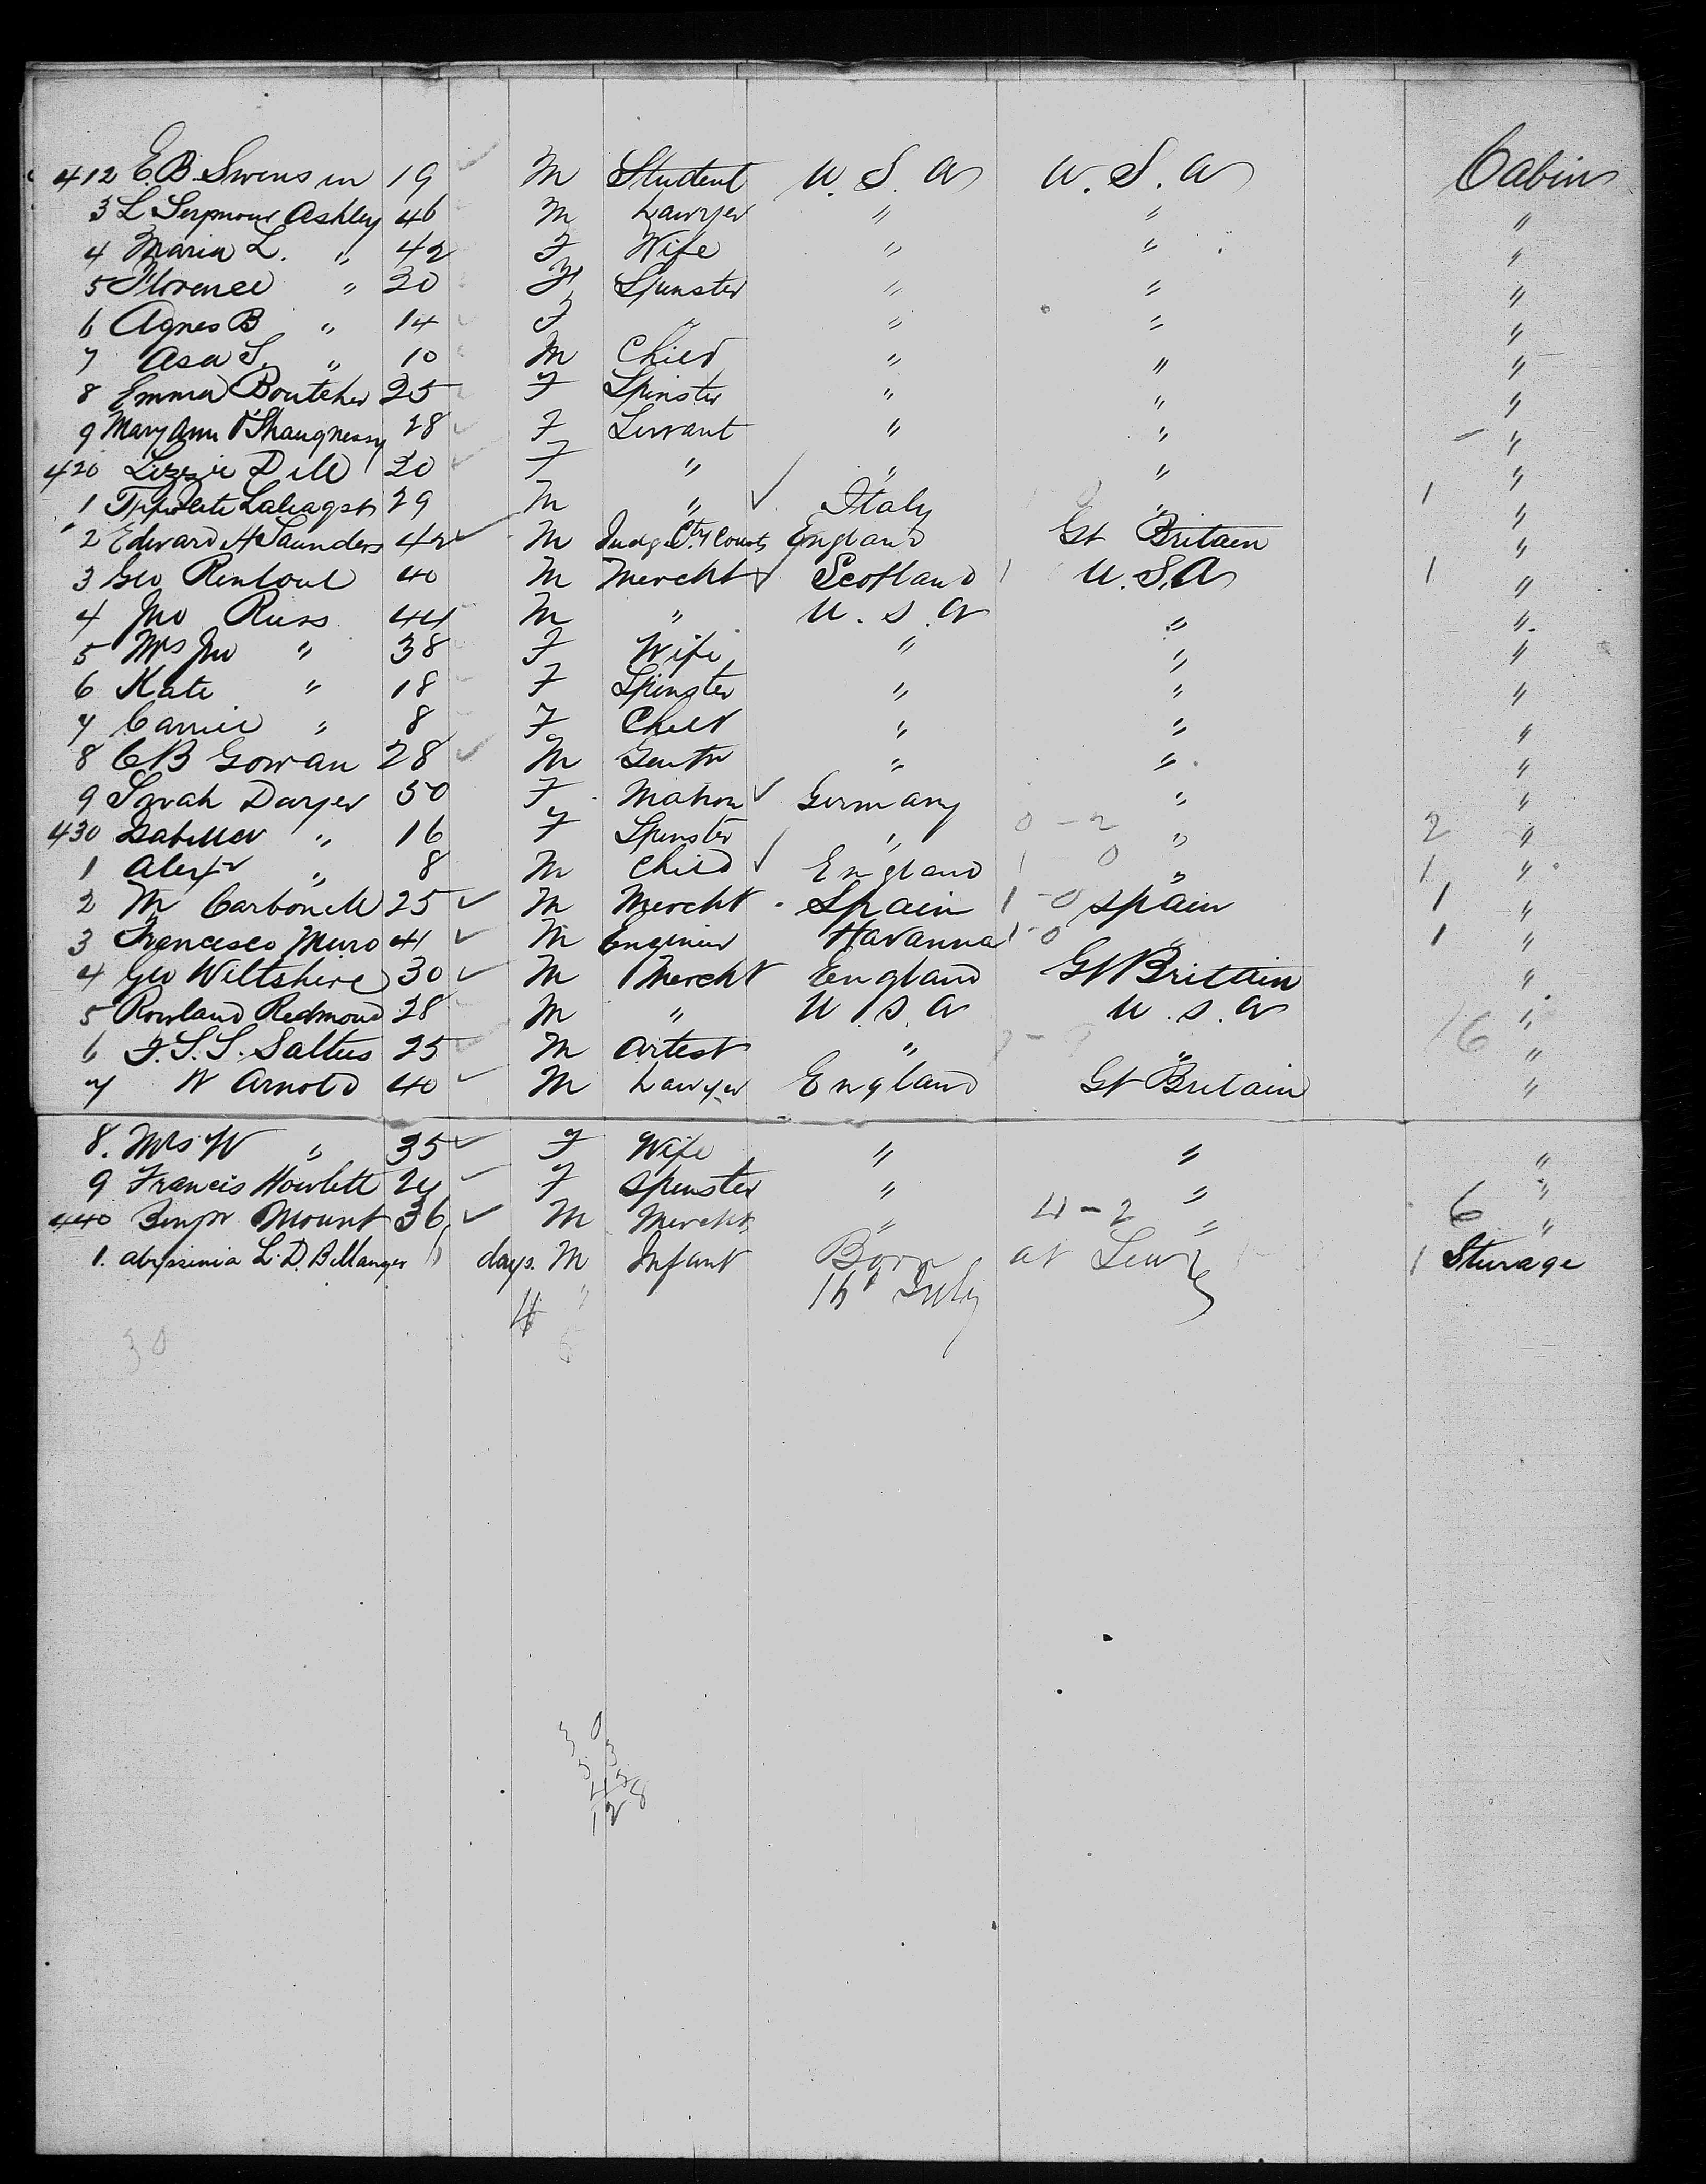 412 E. B. Swensin 19 M Student U. S. A U. S. A Cabin
3 L Seymour Ashley 46 M Lawyer " " "
4 Maria L. " 42 F Wife " " "
5 Florence " 20 F Spinster " " "
6 Agnes B " 14 F " " " "
7 Asa S. " 10 M Child " " "
8 Emma Boutcher 25 F Spinster " " "
9 Mary Ann O'Shaugnessy 28 F Servant " " "
420 Lizzie Dill 20 F " " " "
1 29 M " Italy " 1 "
2 Edward H Saunders 42 M Judge Cty Courts England Gt Britain "
3 Geo Rintoul 40 M Mercht Scotland 1 U. S. A 1 "
4 Jno Russ 44 M " U. S. A " "
5 Mrs Jno " 38 F Wife " " "
6 Kate " 18 F Spinster " " "
7 Carrie " 8 F Child " " "
8 C B Gowan 28 M Gentn " " "
9 Sarah Dayer 50 F Matron Germany " "
430 Isabella " 16 F Spinster " 0-2 " 2 "
1 Alexr " 8 M Child England 1 0 " 1 "
2 M Carbonell 25 M Mercht Spain 1-0 Spain 1 "
3 Francesco Muro 41 M Engineer Havanna 1-0 " 1 "
4 Geo Wiltshire 30 M Mercht England Gt Brittain "
5 Rowland Redmond 28 M " U. S. A U. S. A "
6 F. S. S. Saltus 25 M Artest " " 16 "
7 W Arnold 40 M Lawyer England Gt Britain "
8. Mrs W " 35 F Wife " " "
9 Francis Howlett 24 F Spinster " " "
440 Benjn Mount 36 M Mercht " 4-2 " 6 "
1. Abyssinia L. D. Bellanger days. M Infant Born at Sea 1 Sturage
4 " 16 July
30 6
30
33
42
128